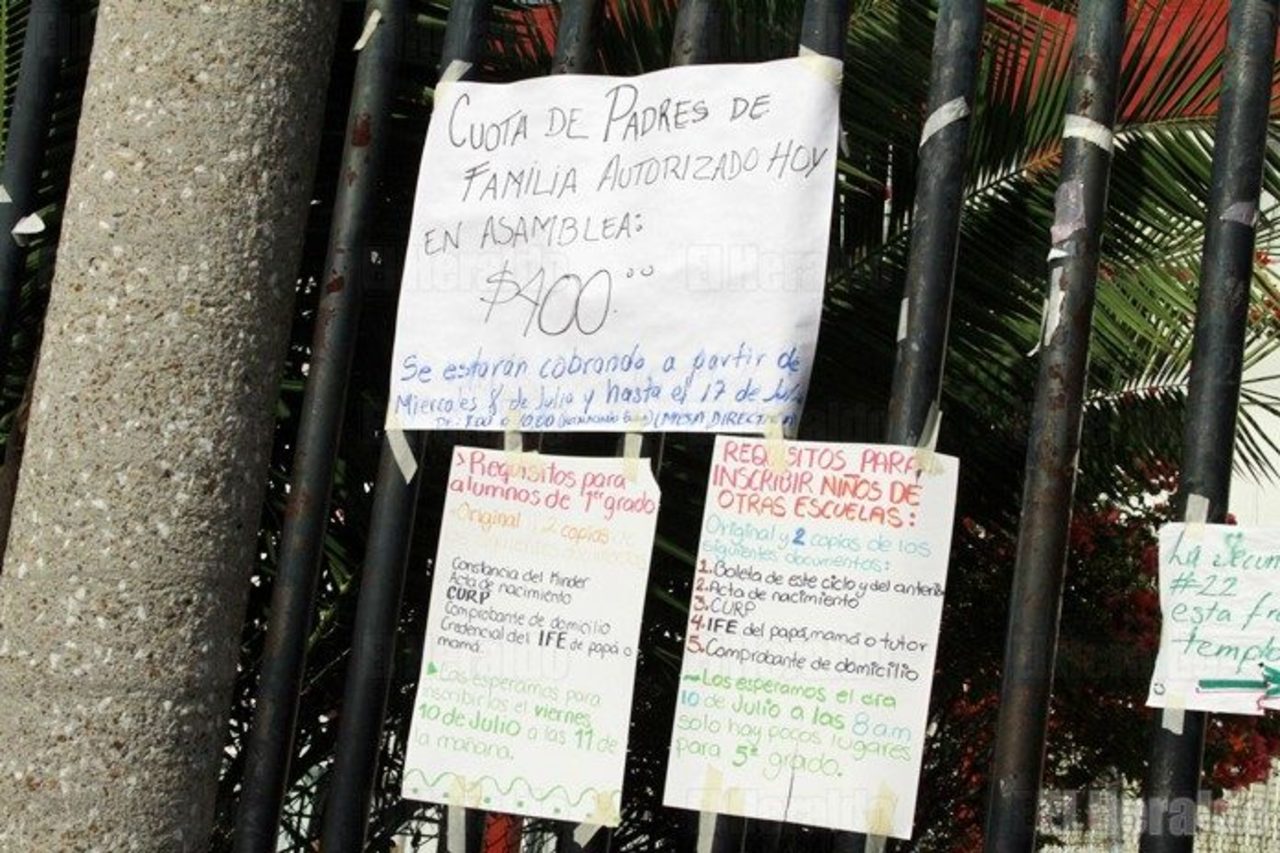 CUOTA DE PADRES DE
FAMILIA AUTORIZADO HOY
EN ASAMBLEA:
$400.00
Se estarán cobrando a partir de
Miercoles 8 de Julio y hasta el 17 de Julio
(MESA DIRECTIVA)
>Requisitos para
alumnos de 1er grado
Original 2 copias de
Constancia del Kinder
Acta de nacimiento
CURP
Comprobante de domicilio
Credencial del IFE de papá o
mamá.
Los esperamos para
inscribirlos el viernes
10 de Julio a las 11 de
la mañana.
REQUISITOS PARA
INSCRIBIR NIÑOS DE
OTRAS ESCUELAS:
Original y 2 copias de los
siguientes documentos:
1. Boleta de este ciclo y del anterior
2. Acta de nacimiento
3. CURP
4. IFE del papá, mamá o tutor
5. Comprobante de domicilio
Los esperamos el
10 de Julio a las 8 a.m
solo hay pocos lugares
para 5º grado.
La Secun
#22
esta fr
templo
El Heraldo